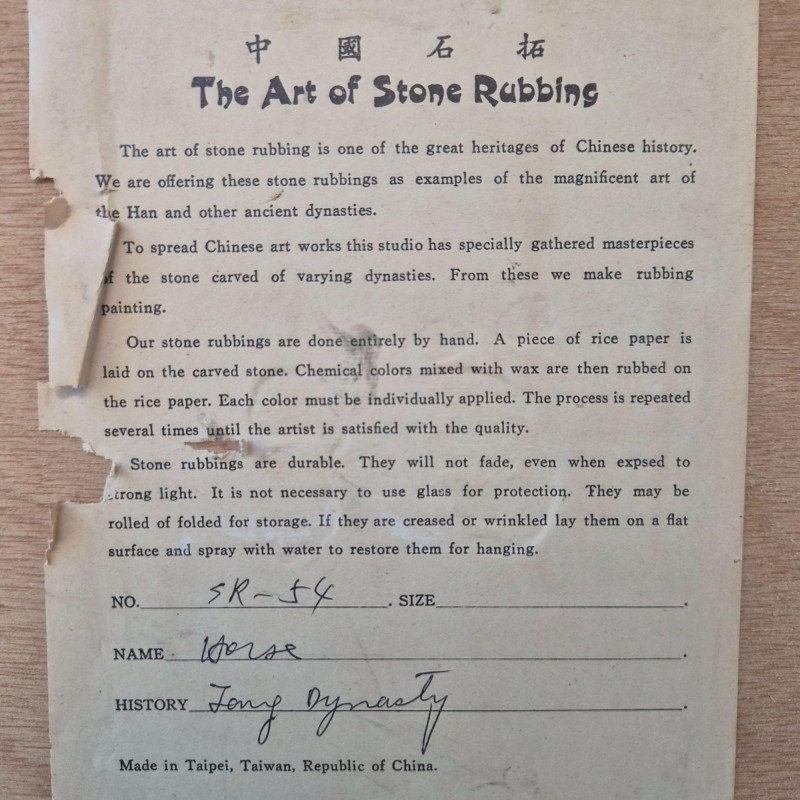 中國石拓
The Art of Stone Rubbing
The art of stone rubbing is one of the great heritages of Chinese history.
We are offering these stone rubbings as examples of the magnificent art of
the Han and other ancient dynasties.
To spread Chinese art works this studio has specially gathered masterpieces
of the stone carved of varying dynasties. From these we make rubbing
painting.
Our stone rubbings are done entirely by hand. A piece of rice paper is
laid on the carved stone. Chemical colors mixed with wax are then rubbed on
the rice paper. Each color must be individually applied. The process is repeated
several times until the artist is satisfied with the quality.
Stone rubbings are durable. They will not fade, even when expsed to
strong light. It is not necessary to use glass for protection. They may be
rolled of folded for storage. If they are creased or wrinkled lay them on a flat
surface and spray with water to restore them for hanging.
NO. SR-54. SIZE.
NAME Horse.
HISTORY Tang Dynasty.
Made in Taipei, Taiwan, Republic of China.